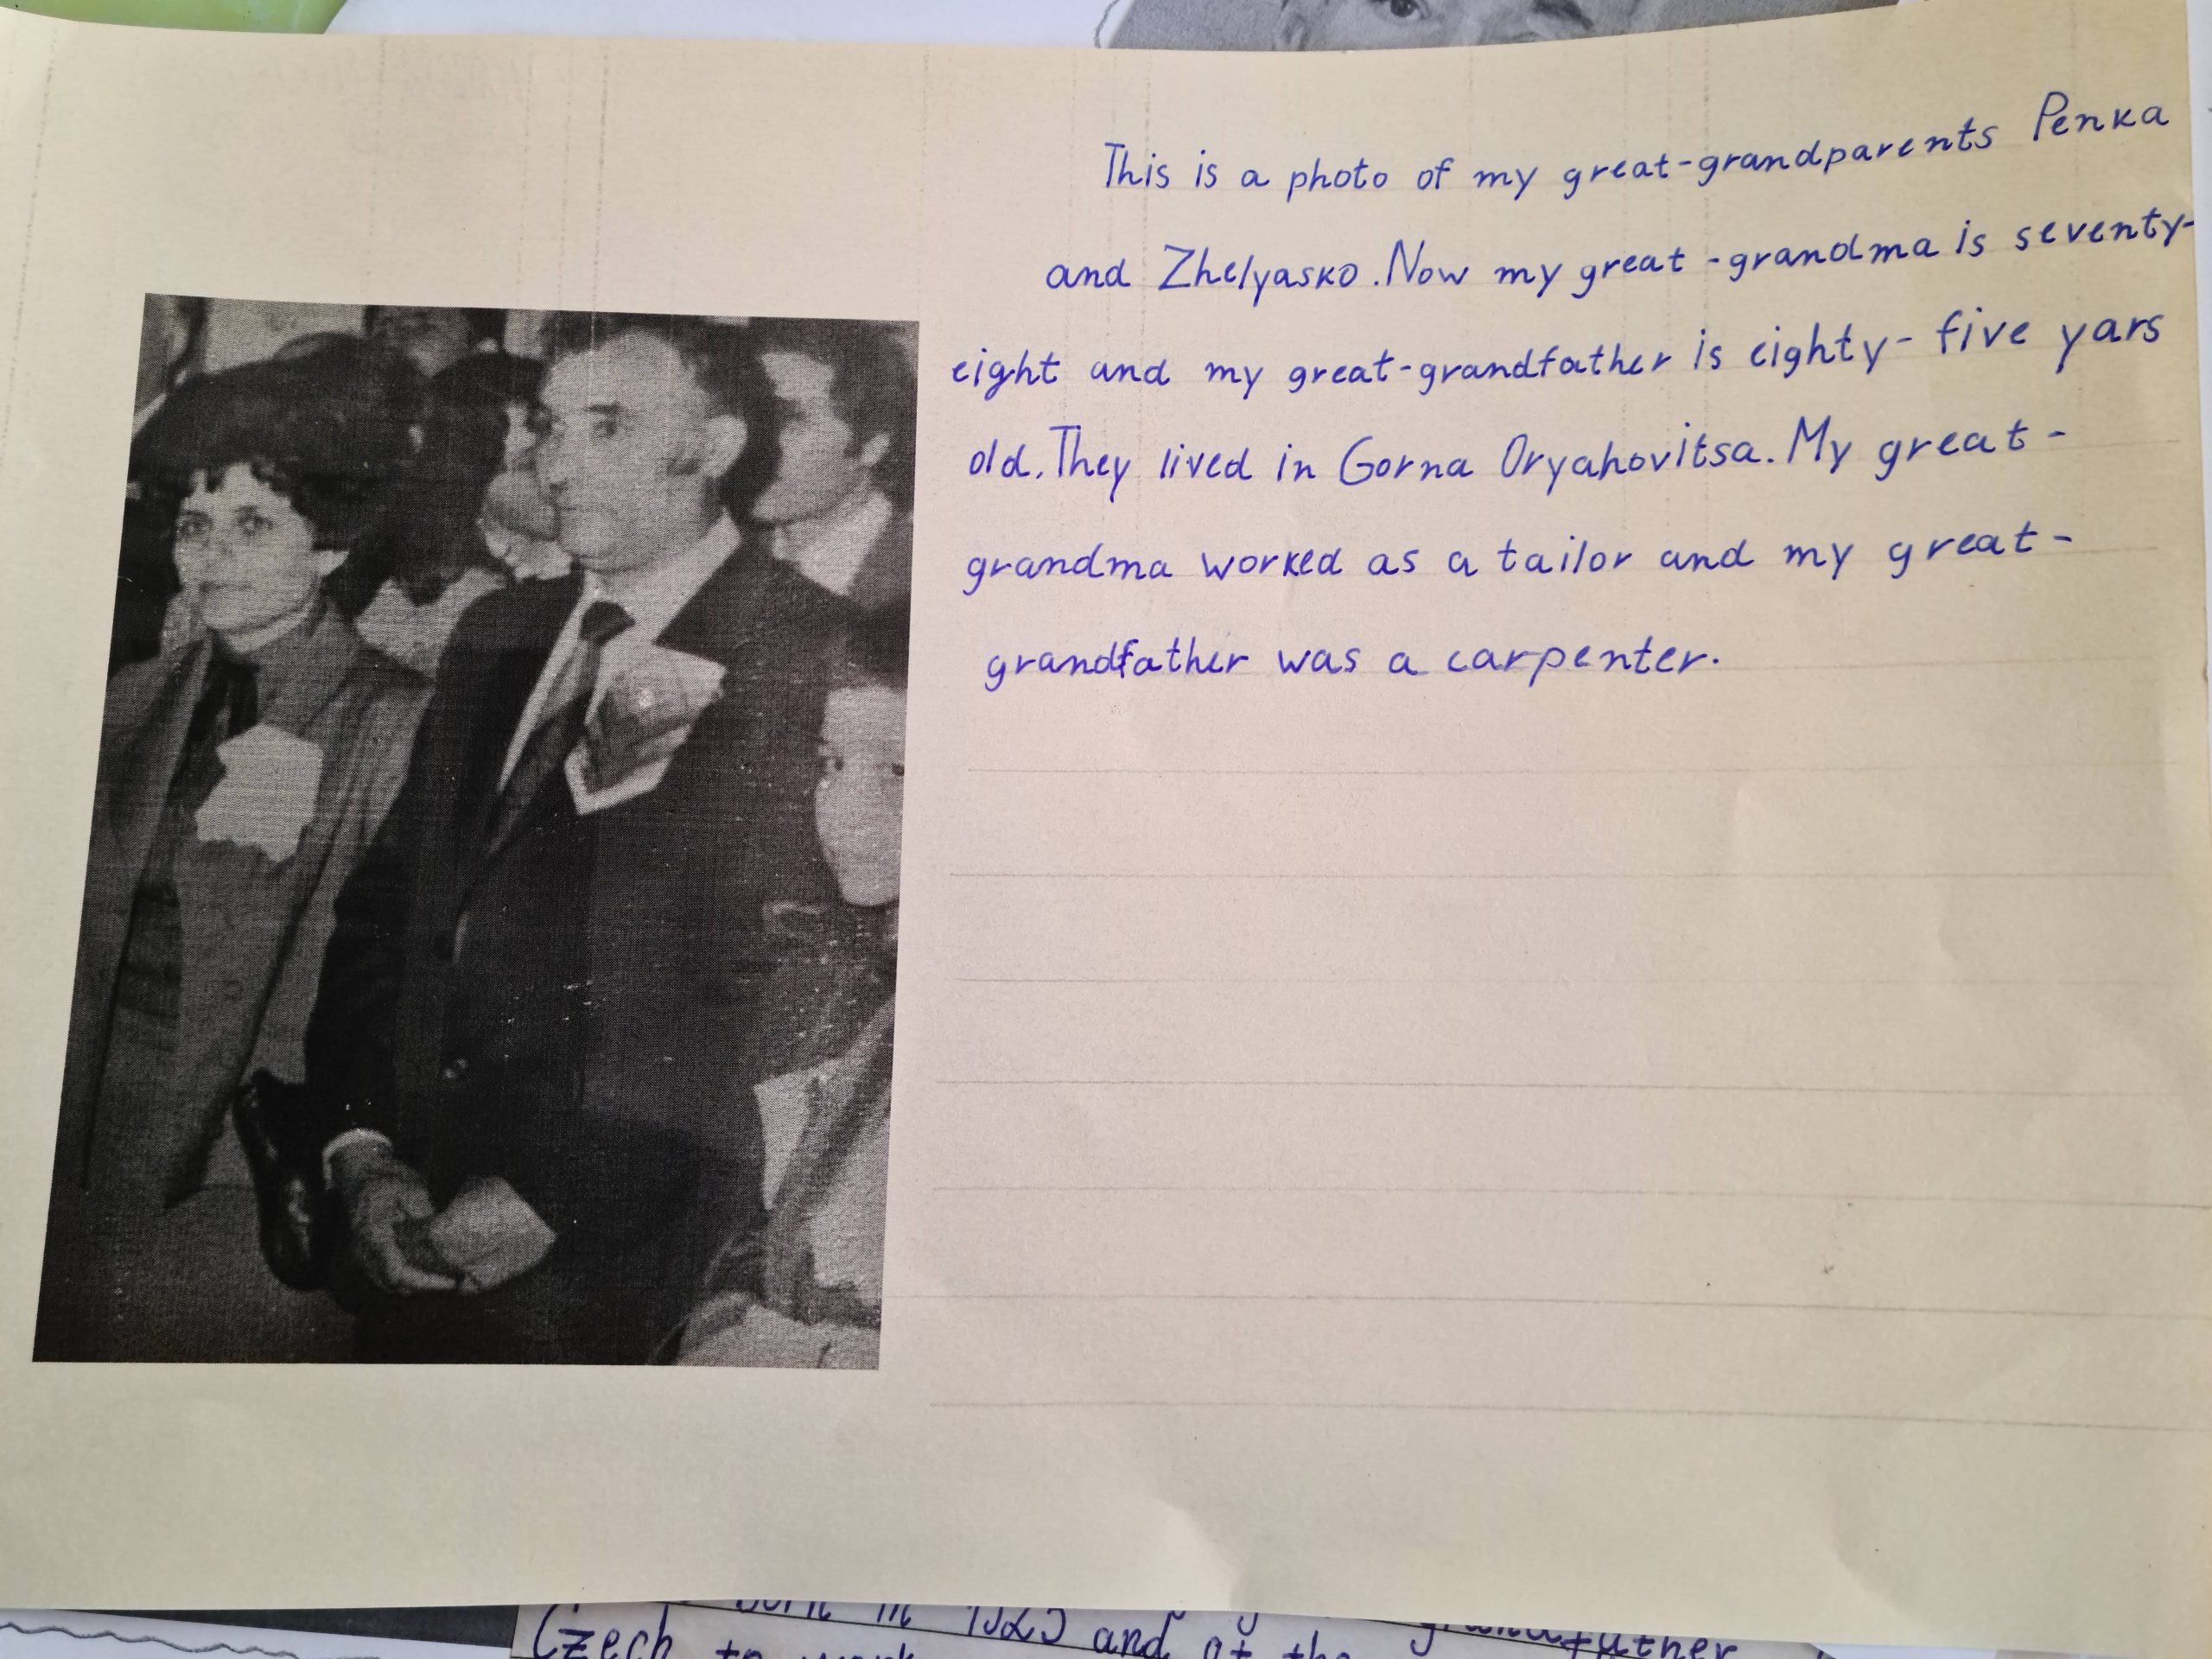 This is a photo of my great-grandparents Penka
and Zhelyasko. Now my great-grandma is seventy-
eight and my great-grandfather is eighty-five yars
old. They lived in Gorna Oryahovitsa. My great-
grandma worked as a tailor and my great-
grandfather was a carpenter.
born in 1925 and grandfather
Czech to work at the